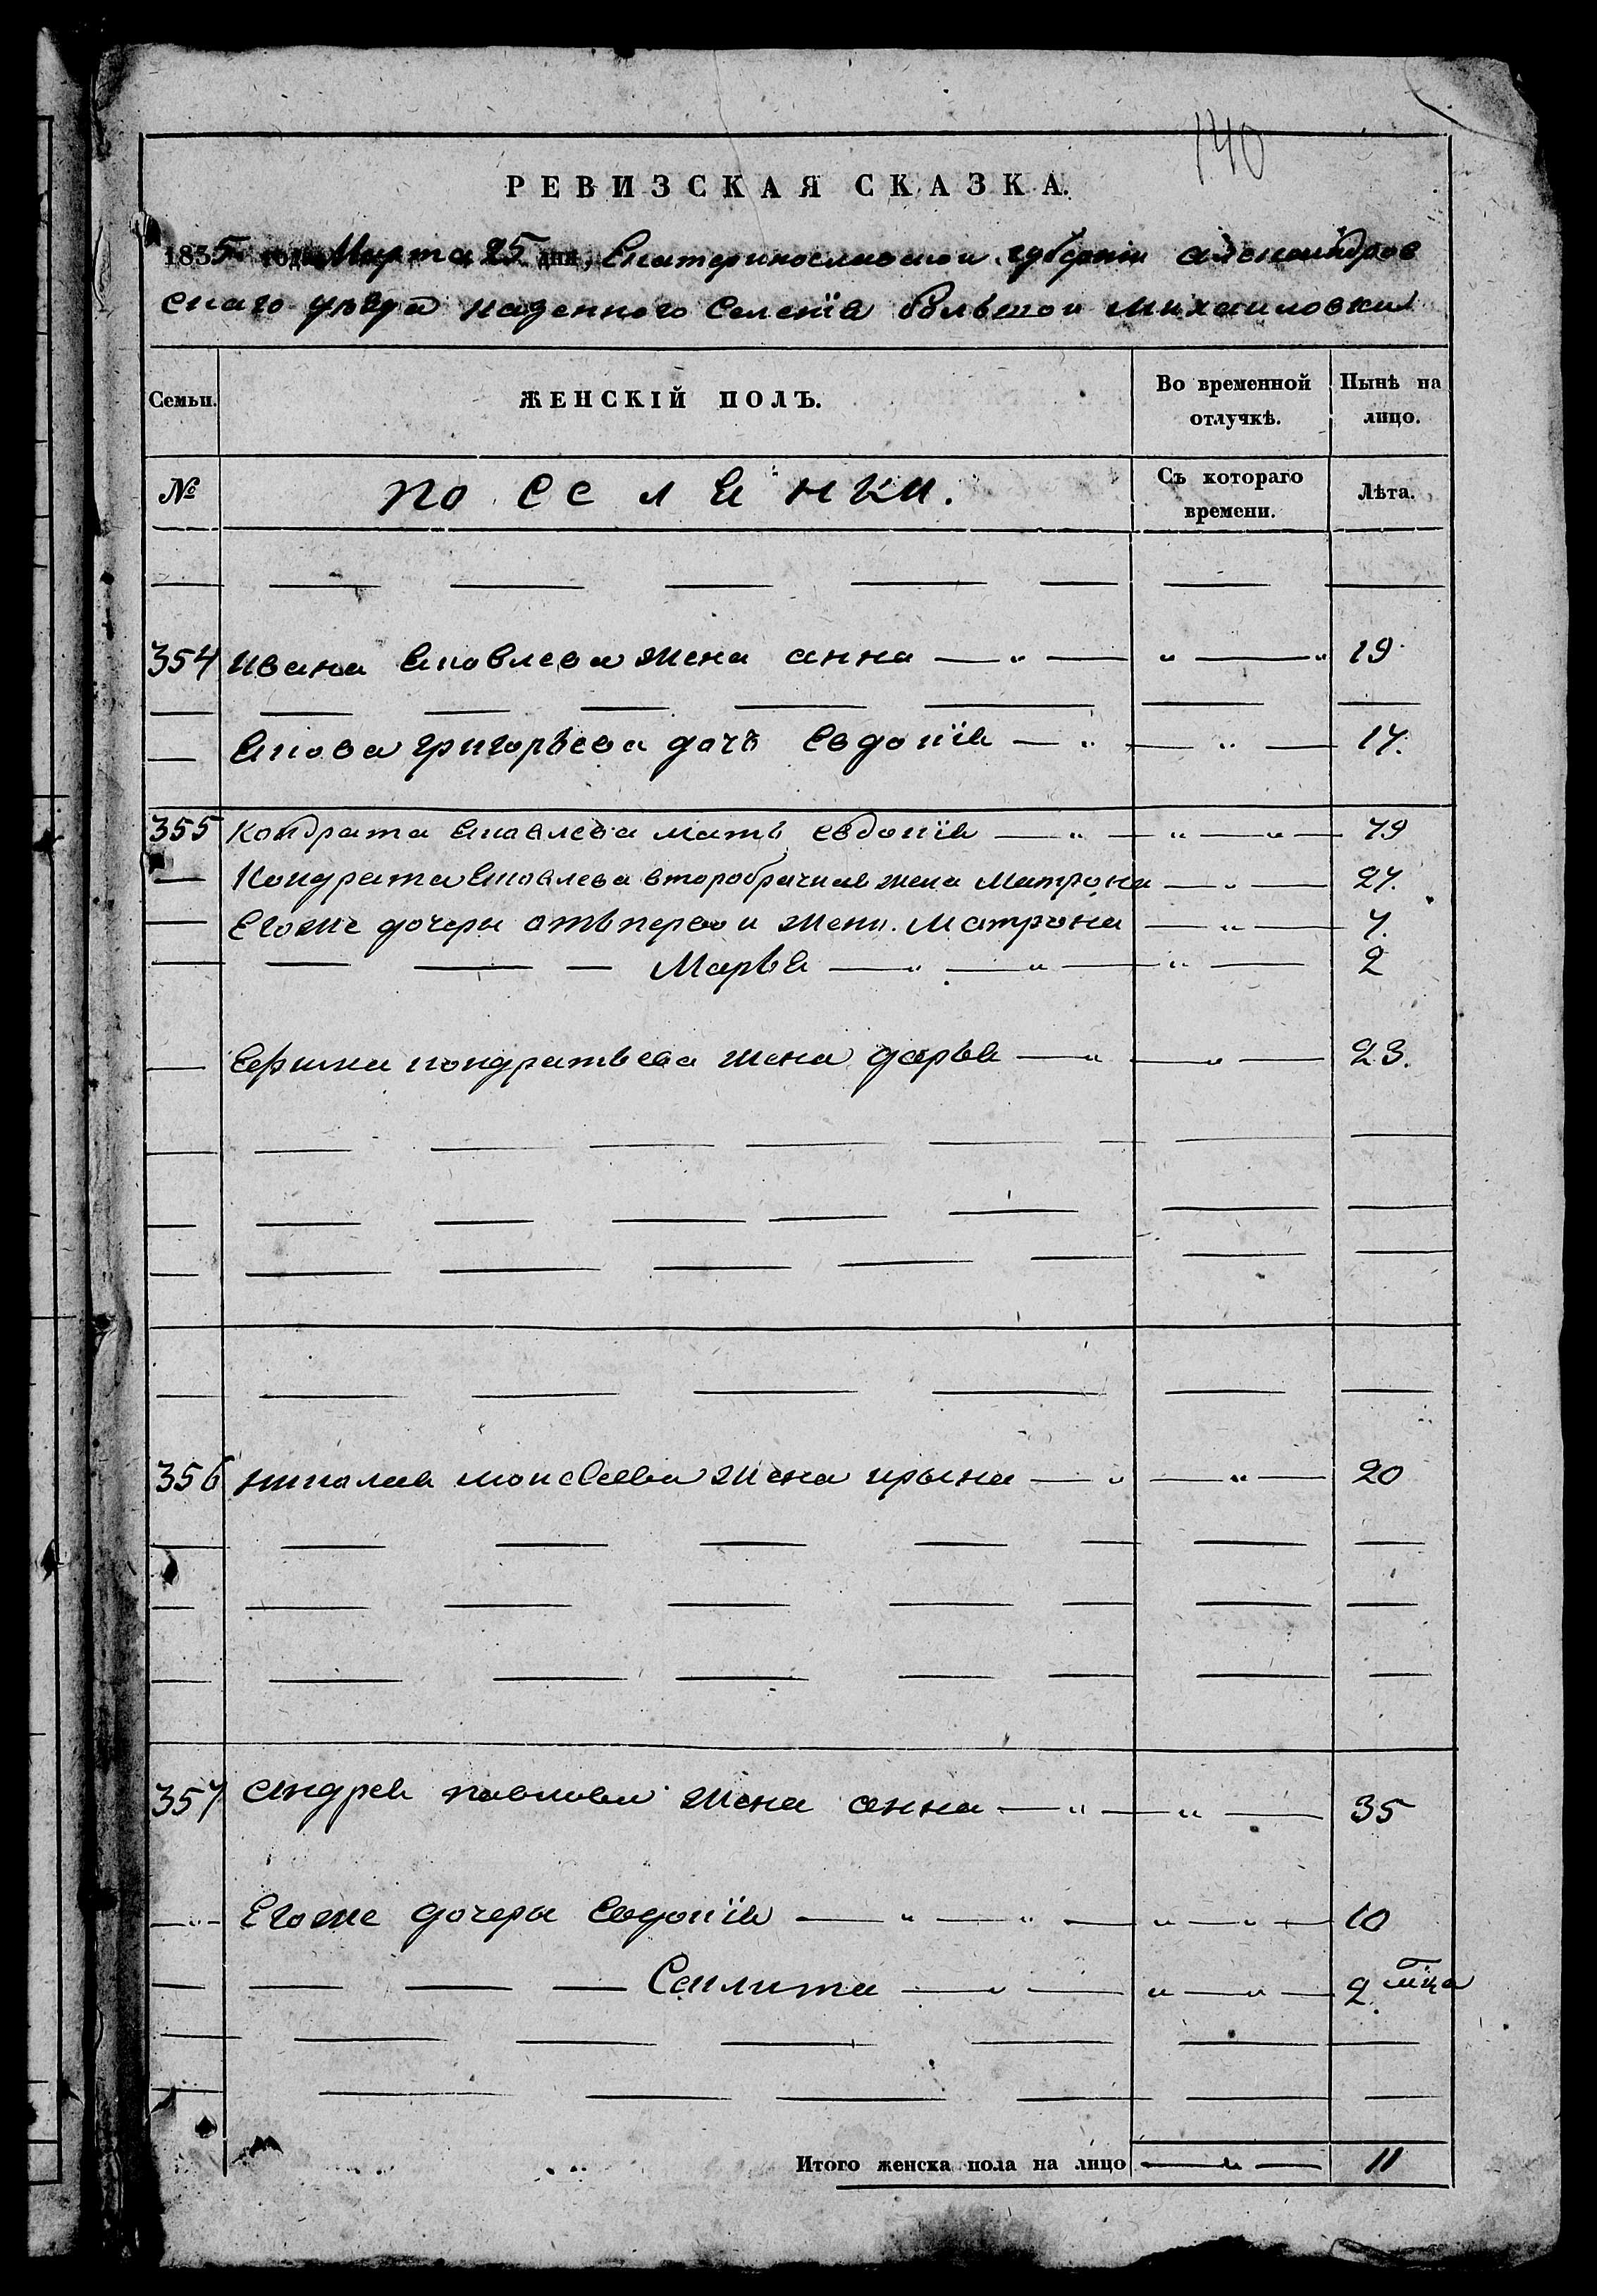 140
РЕВИЗСКАЯ СКАЗКА.
1835 года Марта 25 дня, Екатеринославской губернїи александров
скаго уѣзда казенного Селенїя большой михаиловки
Семьи. ЖЕНСКІЙ ПОЛЪ. Во временной отлучкѣ. Нынѣ на лицо.
№ поселянки. Съ котораго времени. Лѣта.
354 ивана Яковлева жена анна 19
Якова григорьева дочь Евдокїя 17.
355 кондрата Яковлева мать евдокїя 79
Кондрата Яковлева второбрачная жена Матрона 27.
Егоже дочеры отъ первои жены. Матрона 7.
Марья 2
Ефима кондратьева жена дарья 23.
356 николая моисеева жена ирына 20
357 андрея павлова жена анна 35
Егоже дочеры Евдокїя 10
Улита 2. мца
Итого женска пола на лицо 11